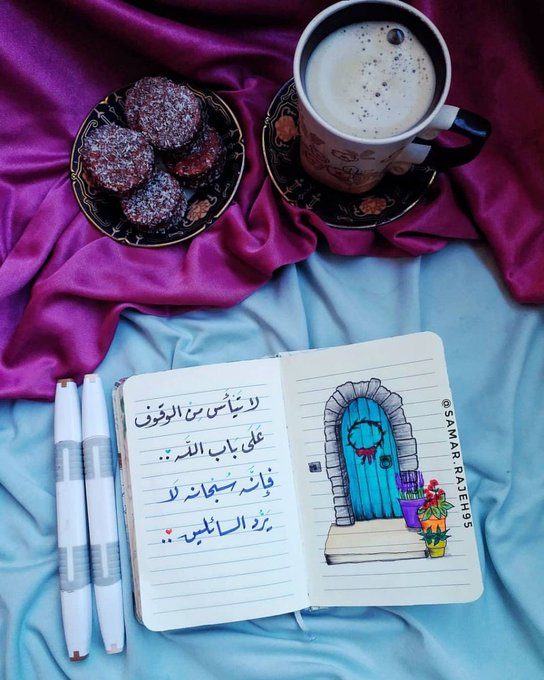 لا تَيْأَس مِن الوقوف
عَلى باب اللّه ..
فإنَّه سُبحانه لَا
يَرُد السائلين ..
@SAMAR.RAJEH95